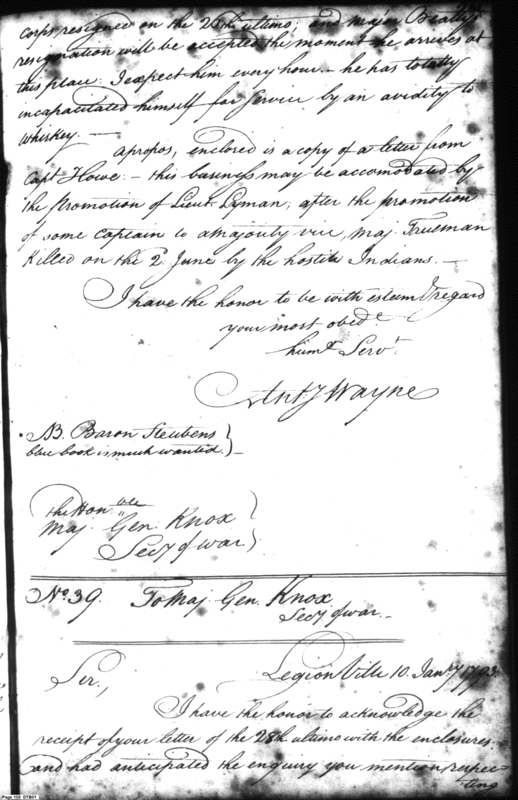 corps resigned on the 26th. ultimo; and major Beatty's
resignation will be accepted the moment he arrives at
this place. I expect him every hour - he has totally
incapacitated himself for service by an avidity to
whiskey. —
apropos, enclosed is a copy of a letter from
Capt Howe. - this business may be accomodated by
the promotion of Lieut. Lyman; after the promotion
of some Captain to a Majority vice, Maj. Trueman
Killed on the 2. June by the hostile Indians. —
I have the honor to be with esteem & regard
your most obedt.
huml. Servt.
Anty Wayne
NB. Baron Steubens
blue book is much wanted. —
the Hon ble
Maj. Gen. Knox
Secy of war
No. 39. To Maj. Gen. Knox
Secy of war —
Legion Ville 10. Jany. 1793.
Sir,
I have the honor to acknowledge the
receipt of your letter of the 28th ultimo with the enclosures.
and had anticipated the enquiry you mention respec-
ting
Page 159 DTB01